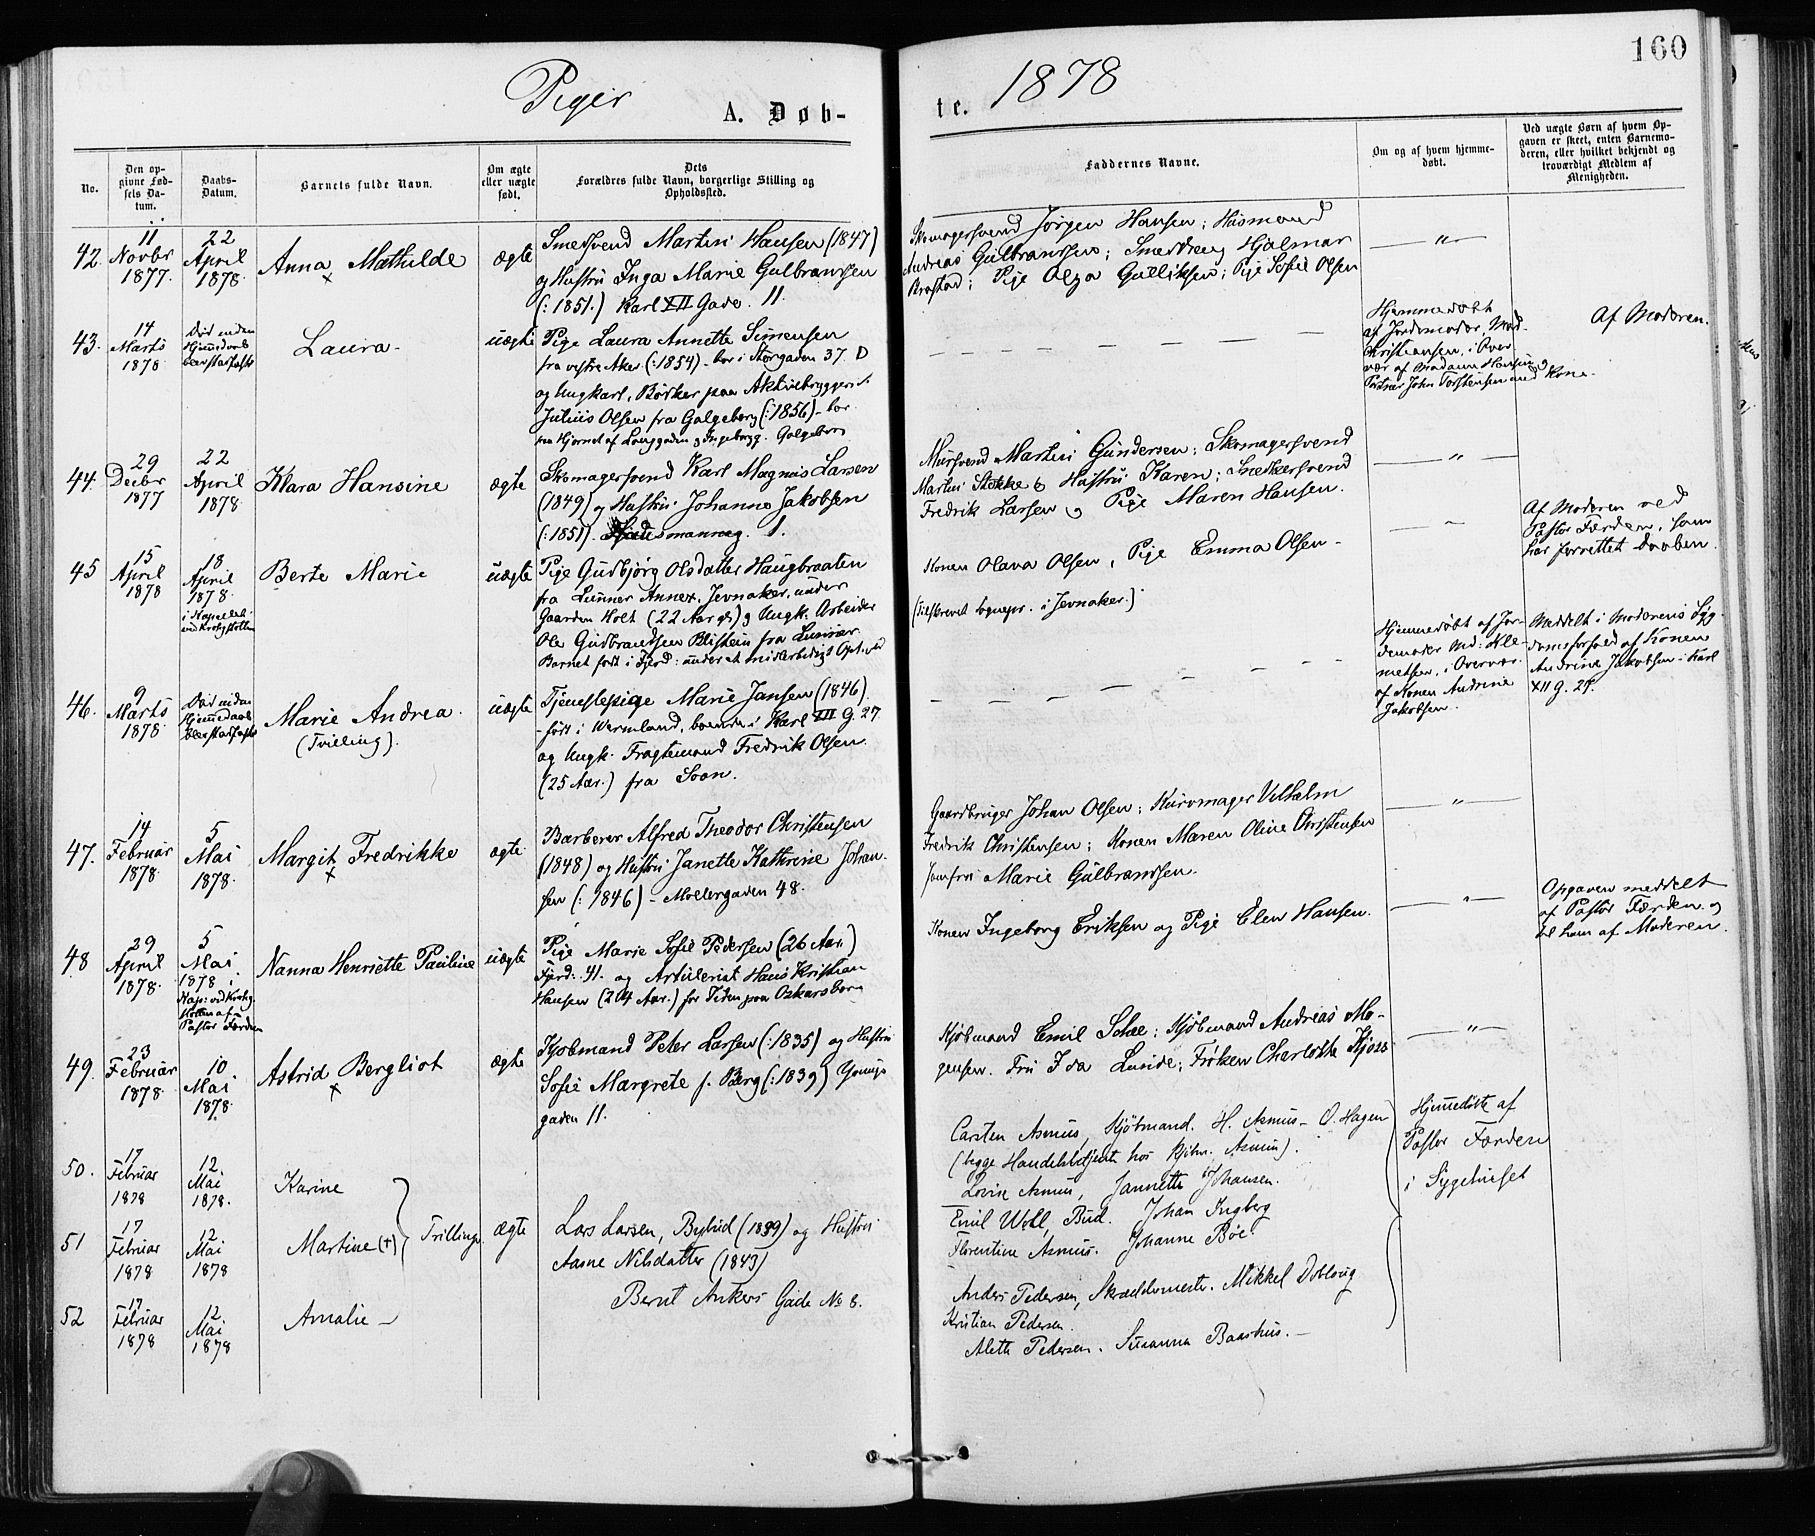 Piger
A. Døb-
te.
1878
160
No.
Den op-
givne Fød-
sels Da-
tum.
Daabs-
Datum.
Barnets fulde Navn.
Om ægte
eller uægte
født.
Dets
Forældres fulde Navn, borgerlige Stilling og
Opholdssted.
Faddernes Navne.
Om og af hvem hjemme-
døbt.
Ved uægte Børn af hvem Op-
gaven er skeet, enten Barnemo-
deren, eller hvilket bekjendt og
troværdigt Medlem af
Menigheden.
42.
11
Novbr
1877.
22
April
1878.
Anna Mathilde
×
ægte
Smedsvend Martin Hansen (1847)
og Hustru Inga Marie Gulbransen
(: 1851.) Karl XII Gade. 11.
Skomagersvend Jørgen Hansen; Husmand
Andreas Gulbranssen; Smeddreng Hjalmar
Brostad; Pige Olga Gulliksen; Pige Sofie Olsen
— " —
43.
14
Marts
1878
Død inden
Hjemmedaab
blev stadfæstet
Laura.
uægte
Pige Laura Annette Simensen
fra vestre Aker (: 1854) - bor i Storgaden 37. D
og Ungkarl, Bødker paa Aktiebryggeri.
Julius Olsen fra Galgeberg (: 1856) - bor
paa Hjørnet af Langgaden og Ingeborgg. Galgeberg
— — — — — —
Hjemmedøbt
af Jordemoder, Mad.
Christiansen, i Over
vær af Madam Hansen og
Portner John Torstensen med Kone.
Af Moderen.
44.
29
Decbr
1877
22
April
1878.
Klara Hansine
ægte
Skomagersvend Karl Magnus Larsen
(1849) og Hustru Johanne Jakobsen
(: 1851). manneg. 1.
Mursvend Martin Gundersen; Skomagersvend
Martin Stokke & Hustru Karen; Snedkersvend
Fredrik Larsen og Pige Maren Hansen.
— " —
45
15
April
1878
18
April
1878.
i Kapellet
ved Krohgstøtten
Berte Marie
uægte
Pige Gudbjørg Olsdatter Haugbraaten
fra Lunner Annex, Jevnaker, under
Gaarden Holt (22 Aar gl.) og Ungk. Arbeider
Ole Gudbrandsen Blistein fra Lunner
Barnet født i Fjerd: under et midlertidigt Oph.sted
Konen Olava Olsen, Pige Emma Olsen -
(Tilskrevet Sognepr. i Jevnaker.)
— " —
Af Moderen ved
Pastor Færden, som
har forrettet Daaben.
46.
9
Marts
1878
Død inden
Hjemmedaab
blev stadfæstet
Marie Andrea.
(Tvilling).
uægte
Tjenestepige Marie Jansen (1846)
- født i Wermland, boende i Karl XII G. 27
og Ungk. Fragtemand Fredrik Olsen.
(25 Aar.) fra Soon.
— — — — — —
Hjemmedøbt af Jor-
demoder Md: Kle-
metsen, i Overvær
af Konen Andrine
Jakobsen.
Meddelt i Moderens Syg
domsforfald af Konen
Andrine Jakobsen i Karl
XII g. 27.
47.
14
Februar
1878
5
Mai
1878.
Margit Fredrikke
×
ægte.
Barberer Alfred Theodor Christensen
(1848) og Hustru Janette Kathrine Johan-
sen (: 1846) - Møllergaden 48.
Gaardbruger Johan Olsen; Kurvmager Vilhelm
Fredrik Christensen; Konen Maren Oline Christensen
Jomfru Marie Gulbrandsen.
— " —
48
29
April
1878.
5
Mai
1878 i
Kap: ved Krohg
støtten af
Pastor Færden
Nanna Henriette Pauline
uægte
Pige Marie Sofie Pedersen (26 Aar.)
Fjerd: 41. og Artillerist Hans Kristian
Hansen (24 Aar.) for Tiden paa Oskarsborg
Konen Ingeborg Eriksen og Pige Elen Hansen.
— " —
Opgaven meddelt
af Pastor Færden og
til ham af Moderen.
49.
23
Februar
1878.
10
Mai
1878.
Astrid Bergliot
×
ægte
Kjøbmand Peter Larsen (: 1835) og Hustru
Sofie Margrete f. Berg (: 1839) Youngs
gaden 11.
Kjøbmand Emil Schee; Kjøbmand Andreas Mo-
gensen. Fru Ida Lunde; Frøken Charlotte Kjøss
— " —
50.
17
Februar
1878
12
Mai
1878.
Karine
51
17
Februar
1878
12
Mai
1878
Martine (+)
Trilling
ægte
Lars Larsen, Bybud (1839) og Hustru
Aasne Nilsdatter (1843)
Bernt Ankers Gade No 6.
52
17
Februar
1878
12
Mai
1878
Amalie —
Carsten Asmus, Kjøbmand. H. Asmus - O. Hagen
(begge Handelsbetjente hos Kjøbm. Asmus).
Lovise Asmus, Jannette Johansen.
Emil Woll, Bud. Johan Ingberg
Florentine Asmus. Johanne Bøe.
Anders Pedersen, Skræddermester. Mikkel Dobloug
Kristian Pedersen.
Aleth Pedersen. Susanna Baashus. —
Hjemmedøbte af
Pastor Færden
i Sygehuset